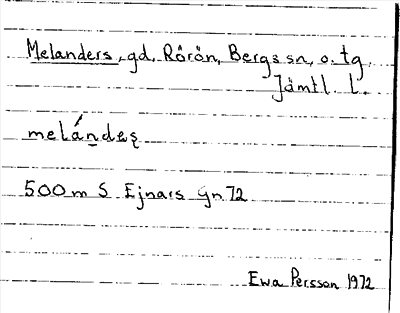 Melanders, gd, Rörön, Bergs sn, o. tg.
Jämtl. L.
melándeş
500 m S Ejnars gn 72
Ewa Persson 1972